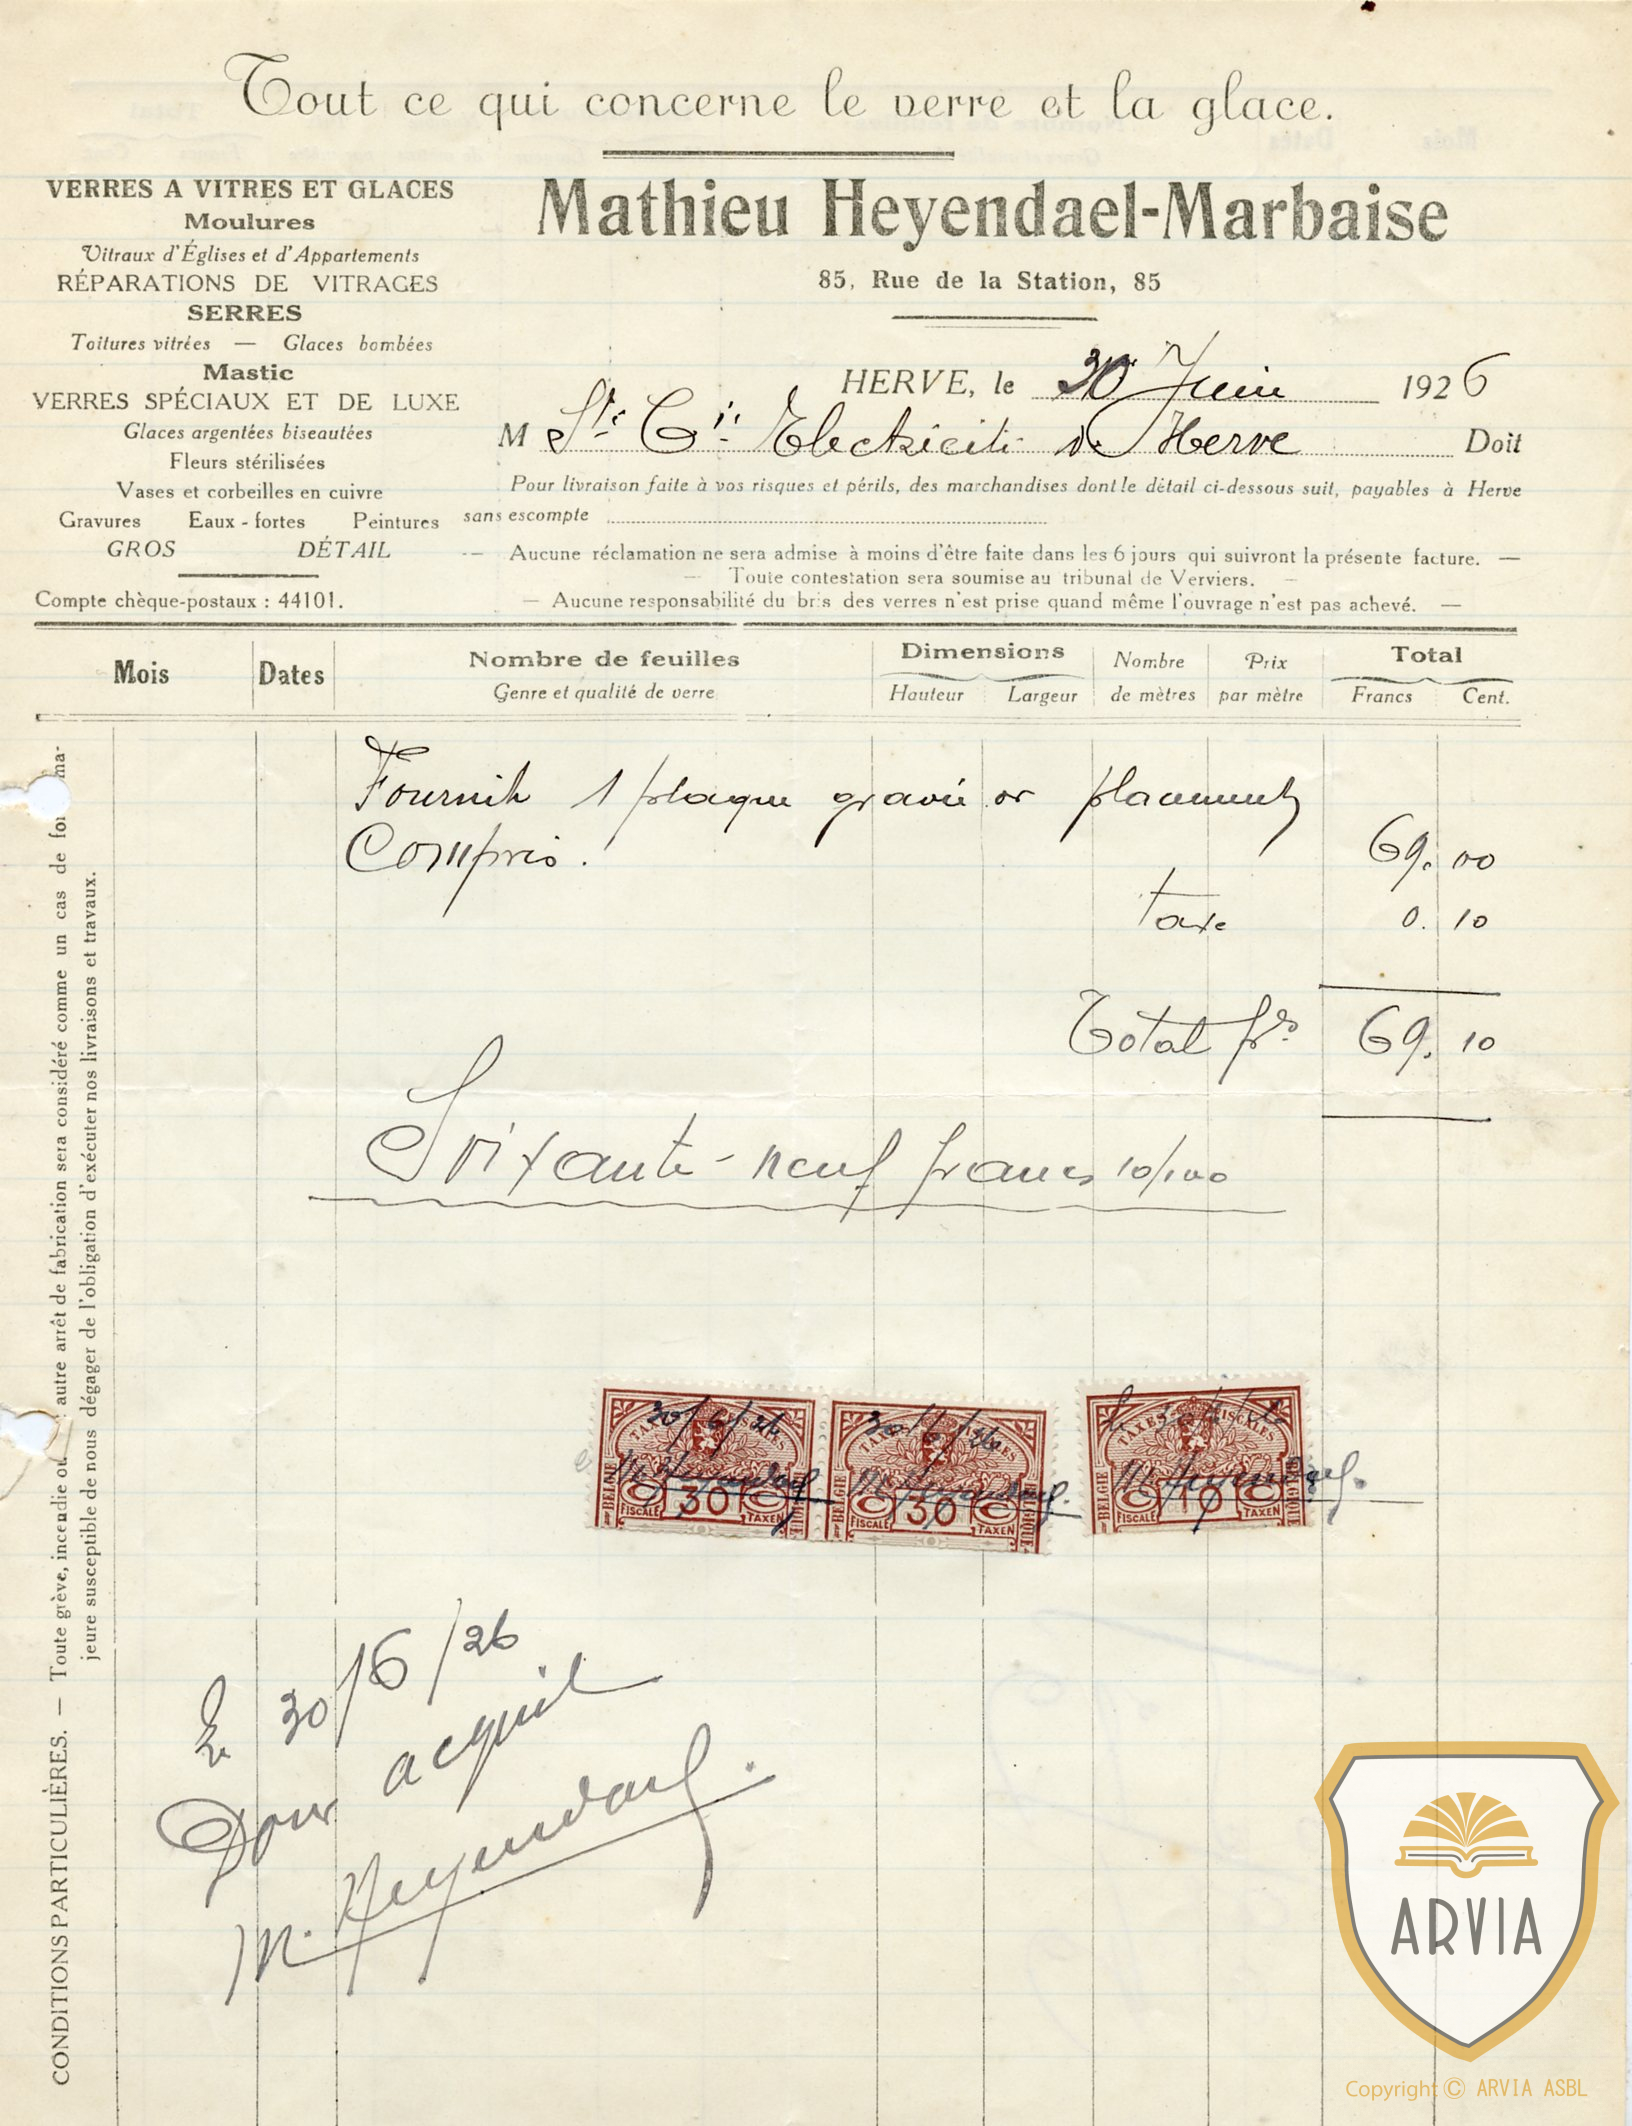 Tout ce qui concerne le verre et la glace.
VERRES A VITRES ET GLACES
Moulures
Vitraux d'Églises et d'Appartements
RÉPARATIONS DE VITRAGES
SERRES
Toitures vitrées — Glaces bombées
Mastic
VERRES SPÉCIAUX ET DE LUXE
Glaces argentées biseautées
Fleurs stérilisées
Vases et corbeilles en cuivre
Gravures Eaux-fortes Peintures
GROS DÉTAIL
Compte chèque-postaux : 44101.
Mathieu Heyendael-Marbaise
85, Rue de la Station, 85
HERVE, le 30 Juin 1926
M Sté Cie Electricité de Herve Doit
Pour livraison faite à vos risques et périls, des marchandises dont le détail ci-dessous suit, payables à Herve
sans escompte
— Aucune réclamation ne sera admise à moins d'être faite dans les 6 jours qui suivront la présente facture. —
— Toute contestation sera soumise au tribunal de Verviers. —
— Aucune responsabilité du bris des verres n'est prise quand même l'ouvrage n'est pas achevé. —
Mois Dates Nombre de feuilles Dimensions Nombre Prix Total
Genre et qualité de verre Hauteur Largeur de mètres par mètre Francs Cent.
Fournit 1 plaque gravée or placement
Compris. 69. 00
taxe 0. 10
Total frs 69. 10
Soixante-neuf francs 10/100
30/6/26 30/6/26 Le 30/6/26
TAXES FISCALES TAXES FISCALES TAXES FISCALES
M Heyendael M Heyendael M Heyendael.
BELGIE 30 BELGIQUE BELGIE 30 BELGIQUE BELGIE 10 BELGIQUE
FISCALE TAXEN FISCALE TAXEN FISCALE TAXEN
Le 30/6/26
Pour acquit
M. Heyendael.
CONDITIONS PARTICULIÈRES. — Toute grève, incendie ou autre arrêt de fabrication sera considéré comme un cas de ma-
jeure susceptible de nous dégager de l'obligation d'exécuter nos livraisons et travaux.
ARVIA
Copyright © ARVIA ASBL